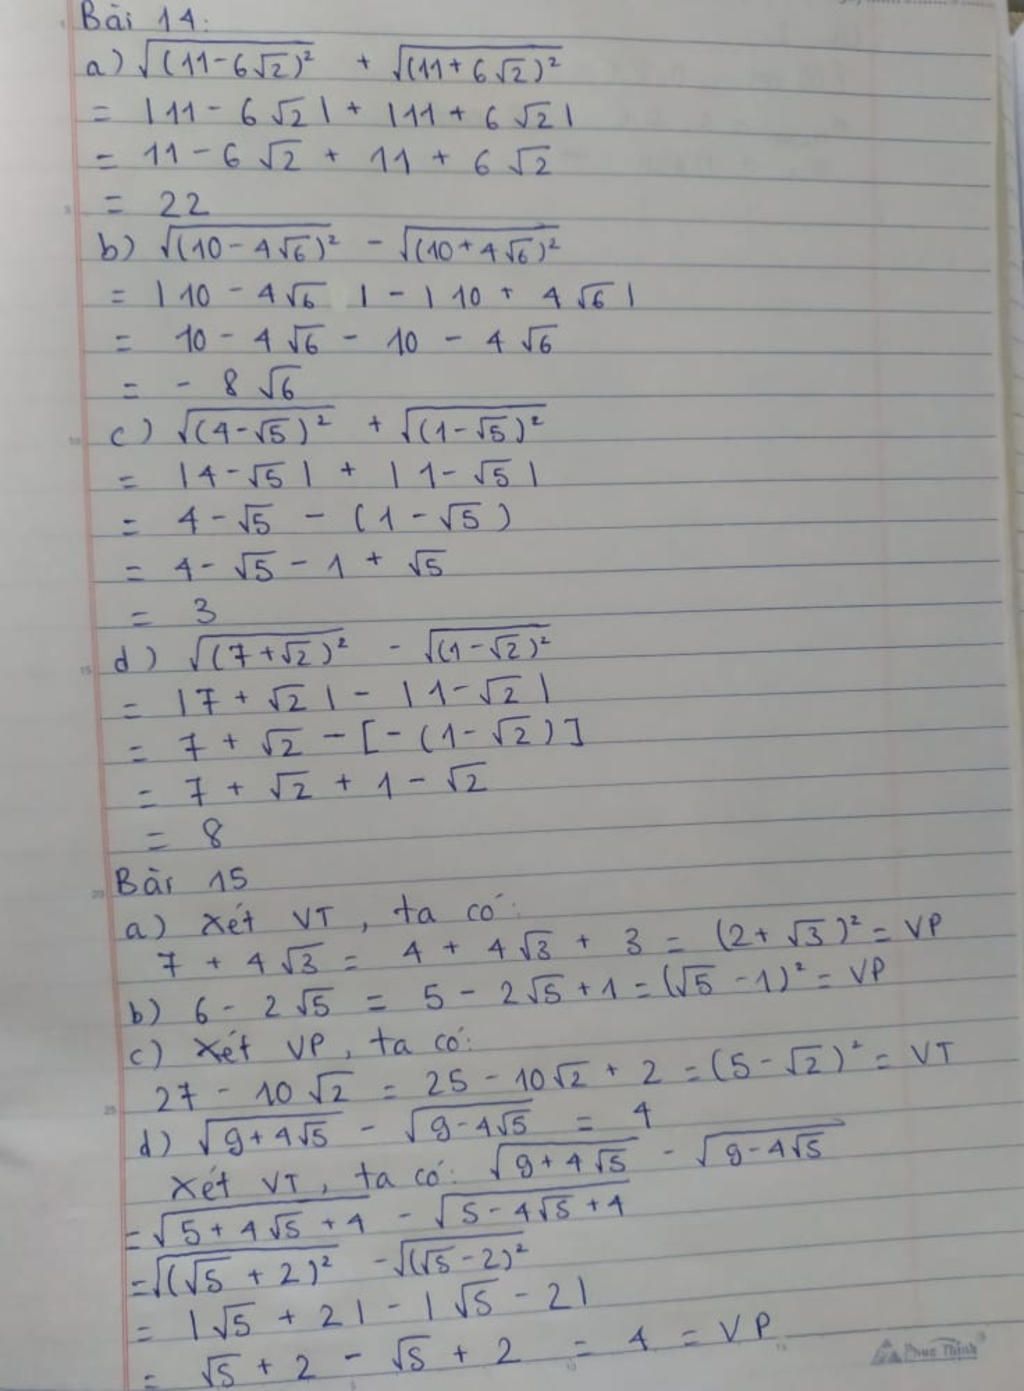 Bài 14:
a) √(11-6√2)² + √(11+6√2)²
= |11-6√2| + |11+6√2|
= 11-6√2 + 11 + 6√2
= 22
b) √(10-4√6)² - √(10+4√6)²
= |10-4√6| - |10+4√6|
= 10-4√6 - 10 - 4√6
= -8√6
c) √(4-√5)² + √(1-√5)²
= |4-√5| + |1-√5|
= 4-√5 - (1-√5)
= 4-√5-1+√5
= 3
d) √(7+√2)² - √(1-√2)²
= |7+√2| - |1-√2|
= 7+√2 - [-(1-√2)]
= 7+√2+1-√2
= 8
Bài 15
a) Xét VT, ta có:
7+4√3 = 4+4√3+3 = (2+√3)² = VP
b) 6-2√5 = 5-2√5+1 = (√5-1)² = VP
c) Xét VP, ta có:
27-10√2 = 25-10√2+2 = (5-√2)² = VT
d) √9+4√5 - √9-4√5 = 4
Xét VT, ta có: √9+4√5 - √9-4√5
= √5+4√5+4 - √5-4√5+4
= √(√5+2)² - √(√5-2)²
= |√5+2| - |√5-2|
= √5+2-√5+2 = 4 = VP
Phúc Thịnh